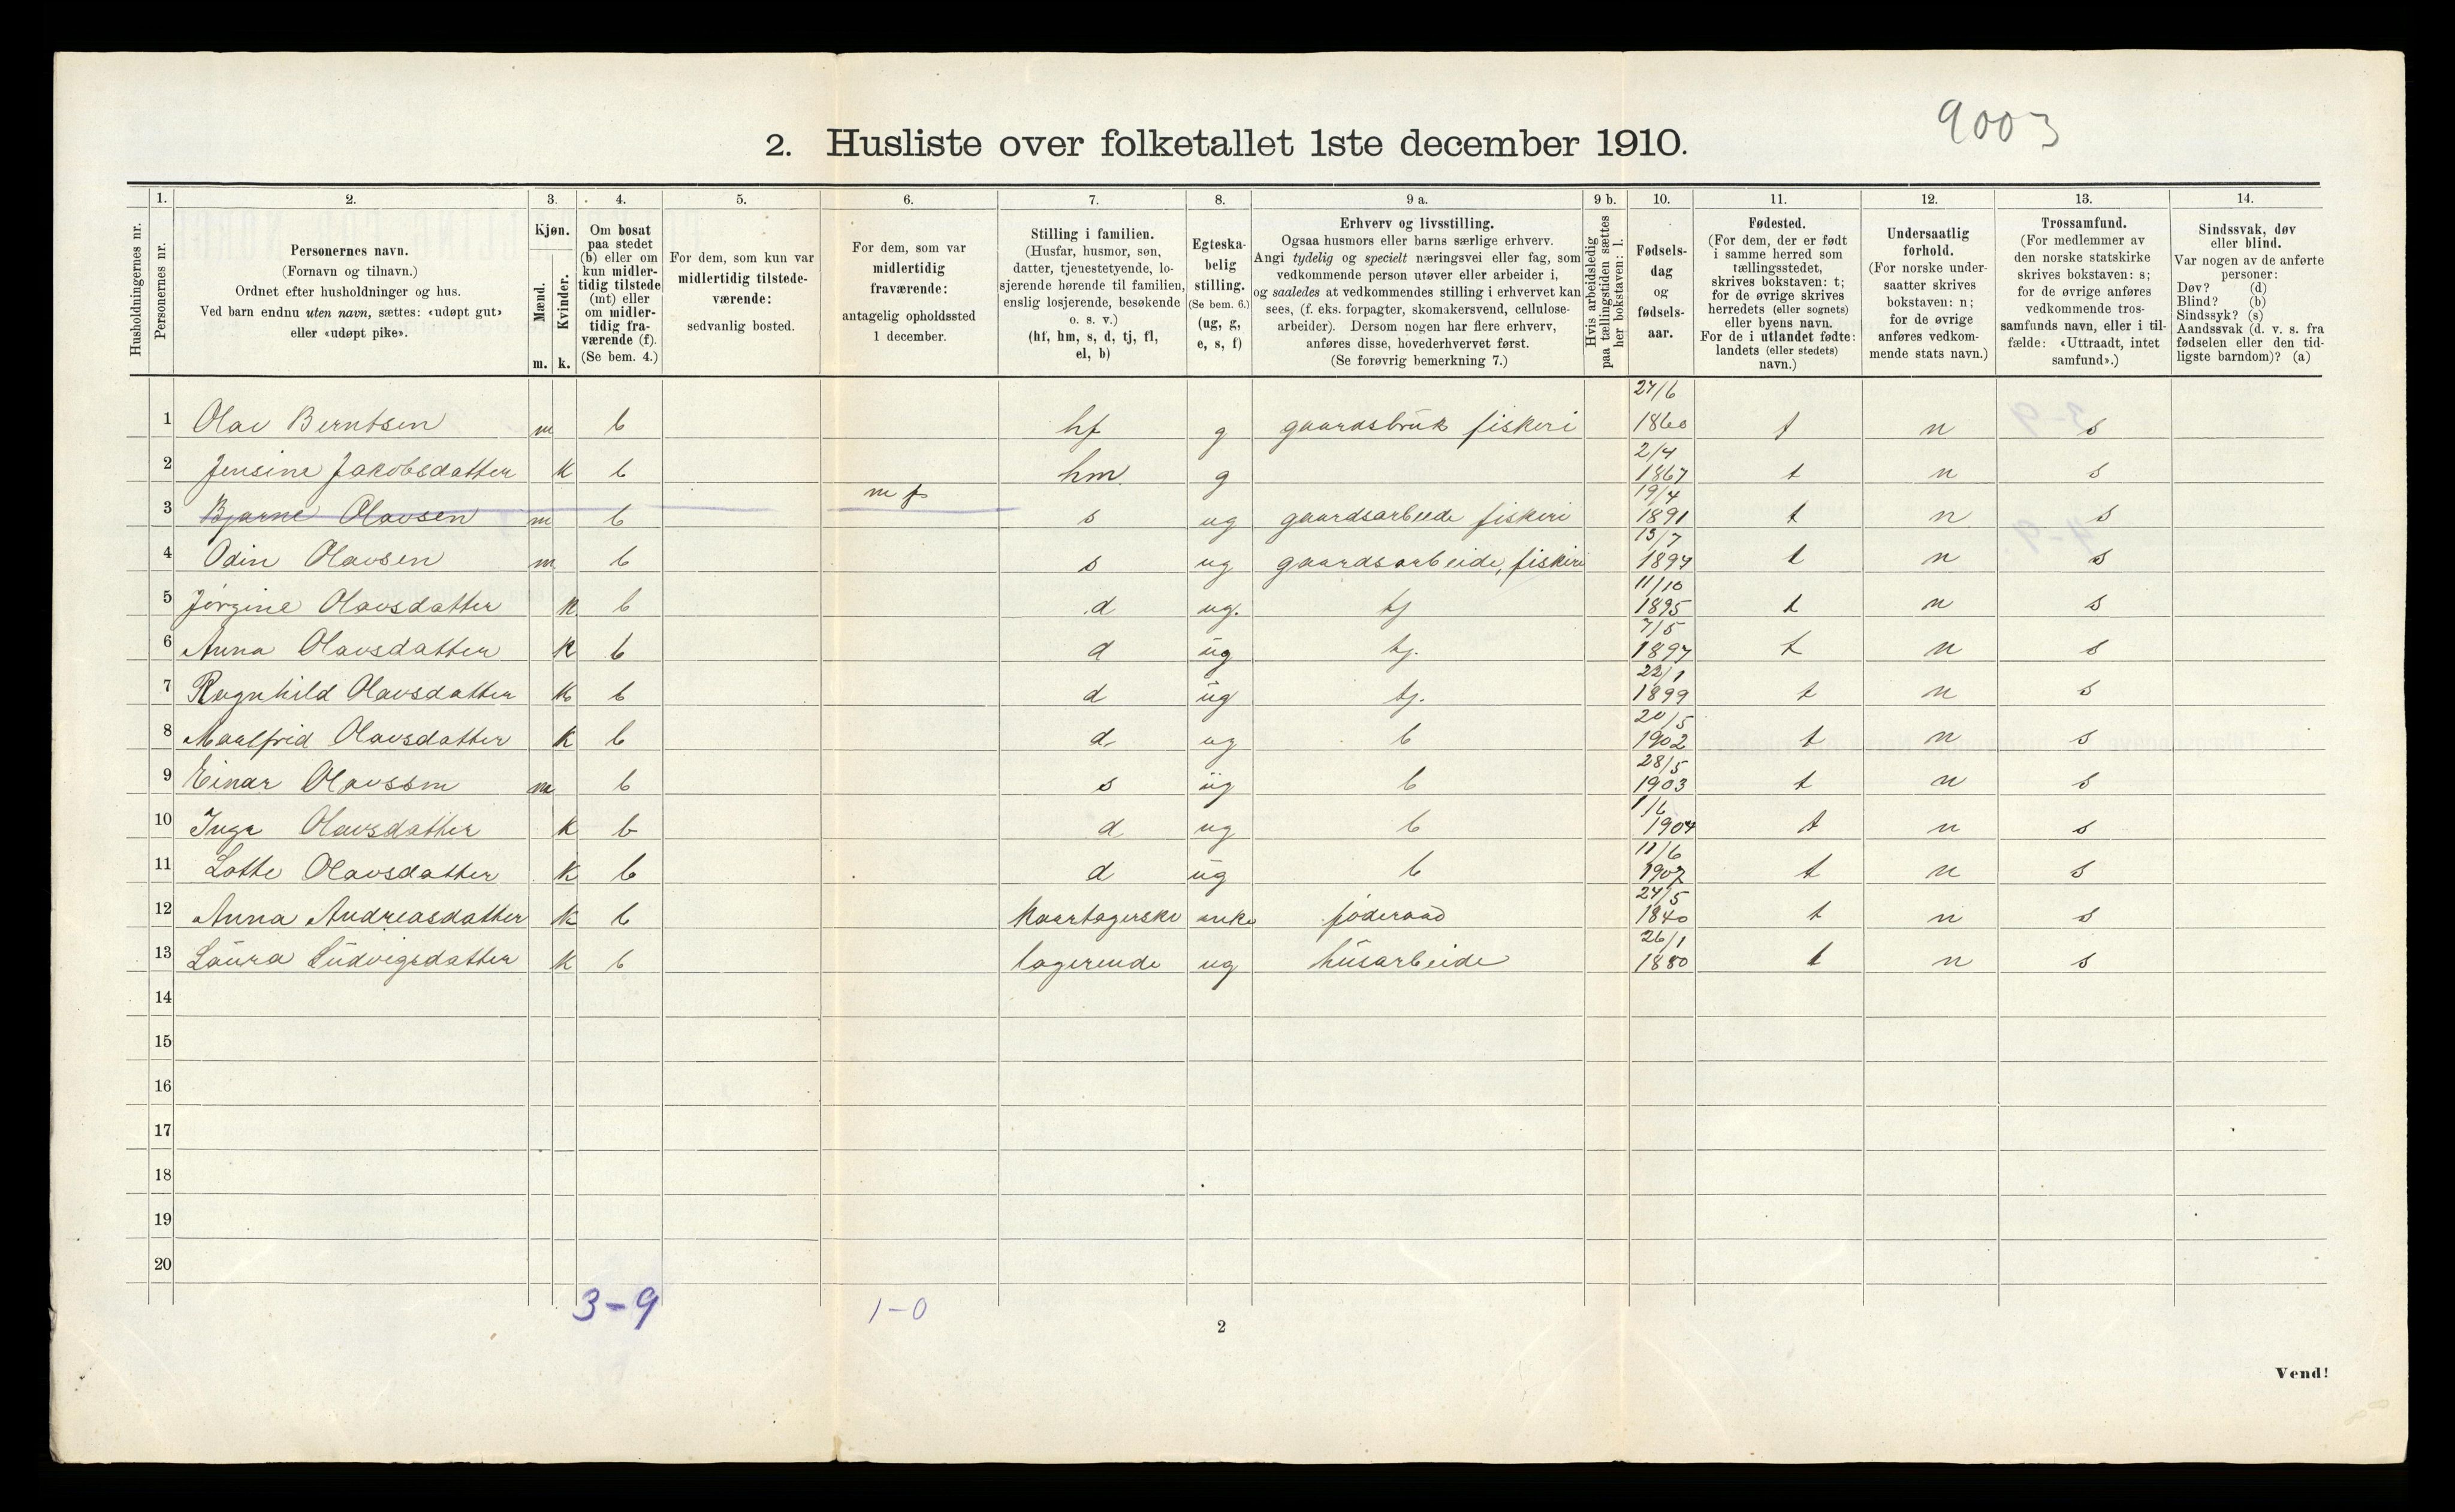 9003
2. Husliste over folketallet 1ste december 1910.
Husholdningernes nr.
1.
Personernes nr.
2.
Personernes navn.
(Fornavn og tilnavn.)
Ordnet efter husholdninger og hus.
Ved barn endnu uten navn, sættes: «udøpt gut»
eller «udøpt pike».
3.
Kjøn.
Mænd.
m.
Kvinder.
k.
4.
Om bosat
paa stedet
(b) eller om
kun midler-
tidig tilstede
(mt) eller
om midler-
tidig fra-
værende (f).
(Se bem. 4.)
5.
For dem, som kun var
midlertidig tilstede-
værende:
sedvanlig bosted.
6.
For dem, som var
midlertidig
fraværende:
antagelig opholdssted
1 december.
7.
Stilling i familien.
(Husfar, husmor, søn,
datter, tjenestetyende, lo-
sjerende hørende til familien,
enslig losjerende, besøkende
o. s. v.)
(hf, hm, s, d, tj, fl,
el, b)
8.
Egteska-
belig
stilling.
(Se bem. 6.)
(ug, g,
e, s, f)
9 a.
Erhverv og livsstilling.
Ogsaa husmors eller barns særlige erhverv.
Angi tydelig og specielt næringsvei eller fag, som
vedkommende person utøver eller arbeider i,
og saaledes at vedkommendes stilling i erhvervet kan
sees, (f. eks. forpagter, skomakersvend, cellulose-
arbeider). Dersom nogen har flere erhverv,
anføres disse, hovederhvervet først.
(Se forøvrig bemerkning 7.)
9 b.
Hvis arbeidsledig
paa tællingstiden sættes
her bokstaven: l.
10.
Fødsels-
dag
og
fødsels-
aar.
11.
Fødested.
(For dem, der er født
i samme herred som
tællingsstedet,
skrives bokstaven: t;
for de øvrige skrives
herredets (eller sognets)
eller byens navn.
For de i utlandet fødte:
landets (eller stedets)
navn.)
12.
Undersaatlig
forhold.
(For norske under-
saatter skrives
bokstaven: n;
for de øvrige
anføres vedkom-
mende stats navn.)
13.
Trossamfund.
(For medlemmer av
den norske statskirke
skrives bokstaven: s;
for de øvrige anføres
vedkommende tros-
samfunds navn, eller i til-
fælde: «Uttraadt, intet
samfund».)
14.
Sindssvak, døv
eller blind.
Var nogen av de anførte
personer:
Døv? (d)
Blind? (b)
Sindssyk? (s)
Aandssvak (d. v. s. fra
fødselen eller den tid-
ligste barndom)? (a)
1 Olav Berntsen m b hf g gaardsbruk fiskeri 27/6 1860 t n s
2 Jensine Jakobsdatter k b hm g 2/4 1867 t n s
3 Bjarne Olavsen m b m f s ug gaardsarbeide fiskeri 19/4 1891 t n s
4 Odin Olavsen m b s ug gaardsarbeide, fiskeri 13/7 1894 t n s
5 Jørgine Olavsdatter k b d ug. tj 11/10 1895 t n s
6 Anna Olavsdatter k b d ug tj. 7/5 1897 t n s
7 Ragnhild Olavsdatter k b d ug tj. 22/1 1899 t n s
8 Maalfrid Olavsdatter k b d ug b 20/5 1902 t n s
9 Einar Olavssen m b s ug b 28/5 1903 t n s
10 Inga Olavsdatter k b d ug b 1/6 1904 t n s
11 Lotte Olavsdatter k b d ug b 11/6 1907 t n s
12 Anna Andreasdatter k b kaartagerske enke føderaad 24/5 1840 t n s
13 Laura Ludvigsdatter k b logerende ug husarbeide 26/1 1880 t n s
14
15
16
17
18
19
20
3-9 1-0
2
Vend!